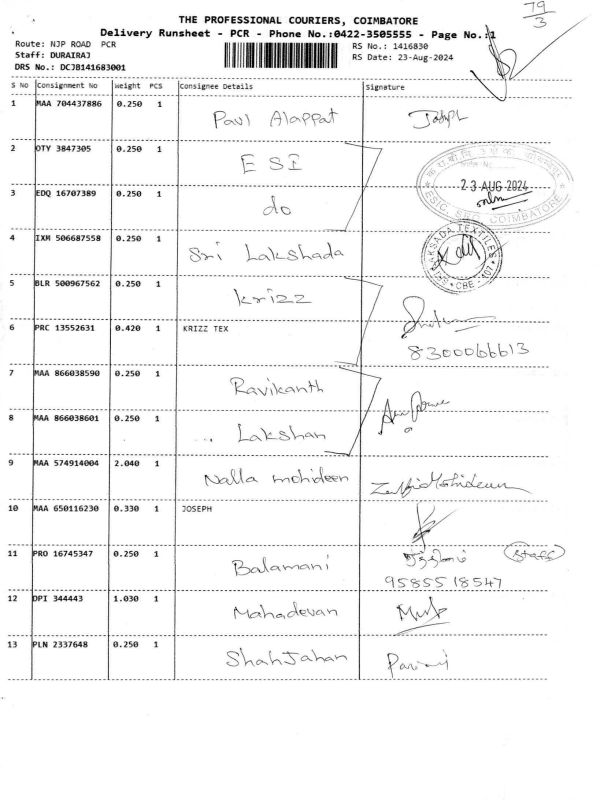 79
3
THE PROFESSIONAL COURIERS, COIMBATORE
Delivery Runsheet - PCR - Phone No.:0422-3505555 - Page No.:1
Route: NJP ROAD PCR
RS No.: 1416830
Staff: DURAIRAJ
RS Date: 23-Aug-2024
DRS No.: DCJB141683001
S No Consignment No Weight PCS Consignee Details Signature
1 MAA 704437886 0.250 1 Paul Alappat Joseph
2 OTY 3847305 0.250 1 ESI
23 AUG 2024
ESIC, COIMBATORE
3 EDQ 16707389 0.250 1 do
4 IXM 506687558 0.250 1 Sri Lakshada
SRI LAKSADA TEXTILES
CBE - 107
5 BLR 500967562 0.250 1 Krizz
6 PRC 13552631 0.420 1 KRIZZ TEX
8300066613
7 MAA 866038590 0.250 1 Ravikanth
8 MAA 866038601 0.250 1 ... Lakshan
9 MAA 574914004 2.040 1 Nalla mohideen
10 MAA 650116230 0.330 1 JOSEPH
11 PRO 16745347 0.250 1 Balamani Staff
9585518547
12 DPI 344443 1.030 1 Mahadevan
13 PLN 2337648 0.250 1 ShahJahan